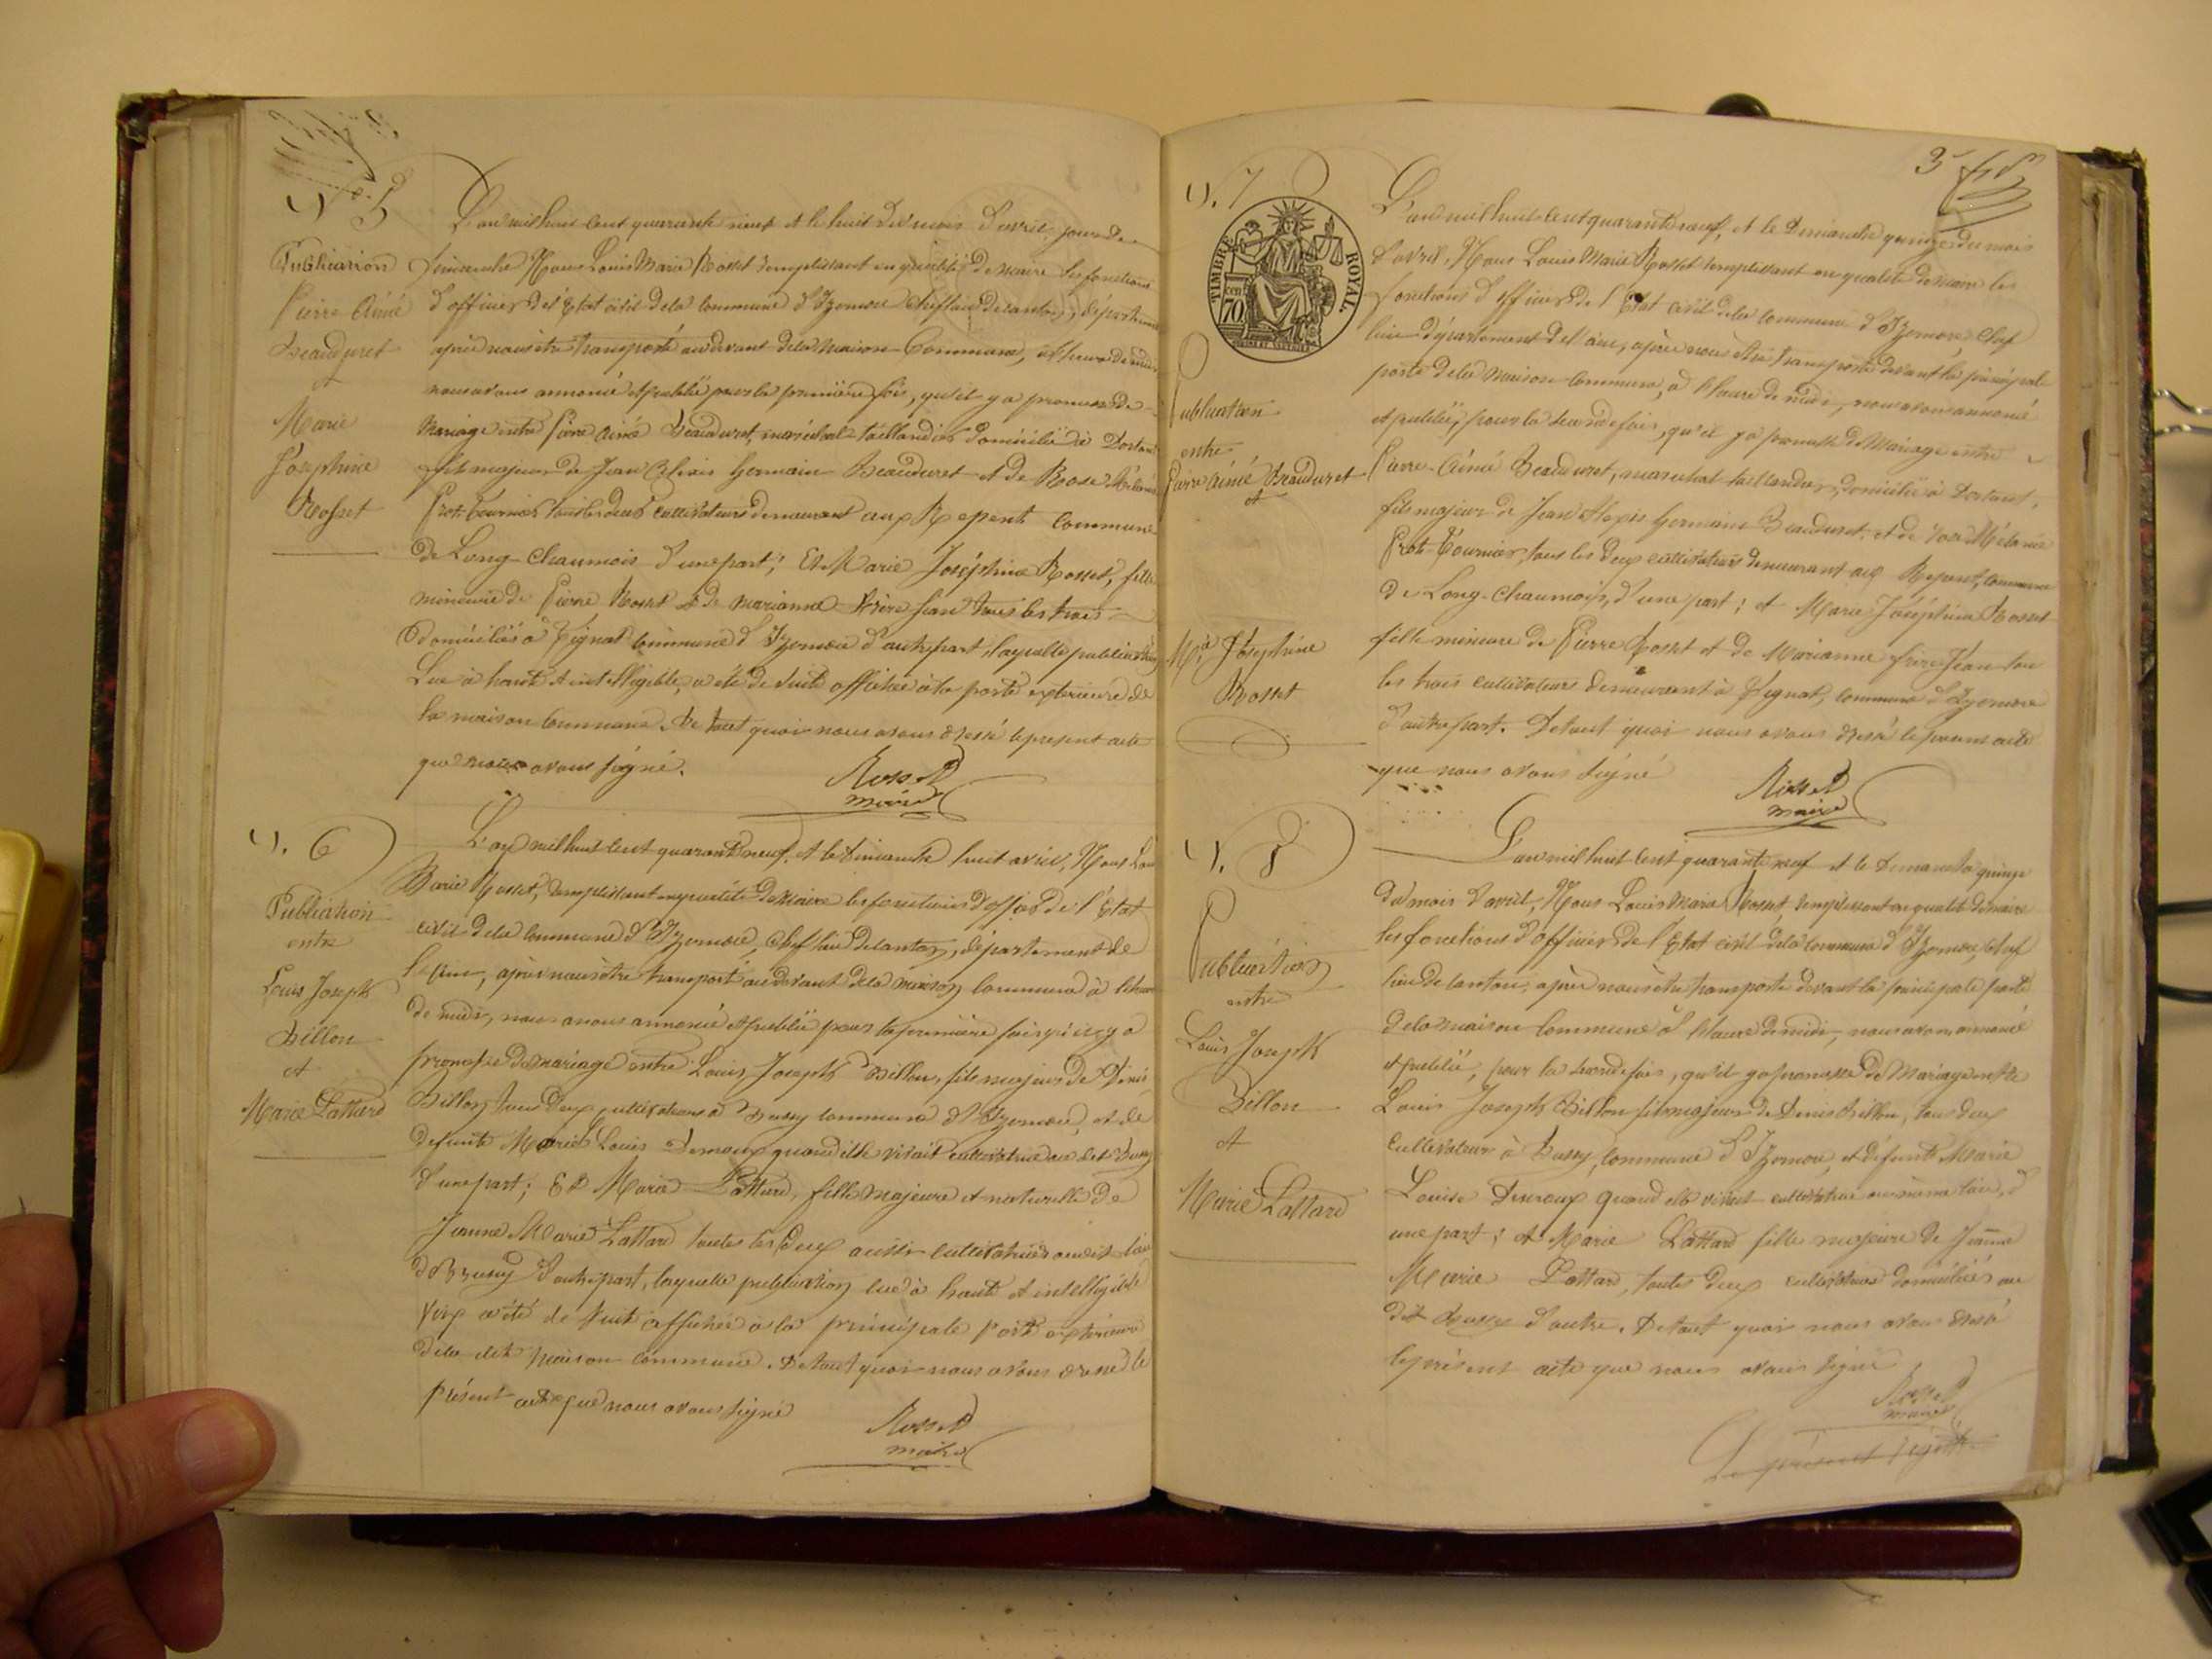 N° 5
Publication
Pierre Aimé
Beauduret
et
Marie
Joséphine
Rosset
L'an mil huit cent quarante neuf et le huit du mois d'avril jour de
dimanche Nous Louis Marie Rosset remplissant en qualité de maire les fonctions
d'officier de l'Etat civil de la commune d'Izernore chef lieu de canton, département
après nous être transporté au devant de la maison Commune, à l'heure de midi
nous avons annoncé et publié pour la première fois, qu'il y a promesse de
mariage entre Pierre Aimé Beauduret, maréchal taillandier domicilié à Dortan
fils majeur de Jean Alexis Germain Beauduret et de Rose Mélanie
Prot-Tournier tous les deux cultivateurs demeurant aux Repent commune
de Long-Chaumois d'une part; Et Marie Joséphine Rosset, fille
mineure de Pierre Rosset et de Marianne frère Jean tous les trois
domiciliés à Tignat commune d'Izernore d'autre part, laquelle publication
Lue à haute et intelligible, a été de suite affichée à la porte exterieure de
la maison Commune. De tout quoi nous avons dressé le present acte
que nous avons signé.
Rosset
maire
N. 6
Publication
entre
Louis Joseph
Billon
et
Marie Lattard
L'an mil huit cent quarante neuf, et le dimanche huit avril, Nous Louis
Marie Rosset, remplissant en qualité de Maire les fonctions d'officier de l'Etat
civil de la commune d'Izernore, chef lieu de canton, département de
l'ain, après nous être transporté au devant de la maison commune à l'heure
de midi, nous avons annoncé et publié pour la première fois qu'il y a
promesse de mariage entre Louis Joseph Billon, fils majeur de Denis
Billon tous deux cultivateurs à Bussy commune d'Izernore, et de
defunte Marie Louise quand elle vivait cultivatrice au dit Bussy
d'une part; Et Marie Lattard, fille majeure et naturelle de
Jeanne Marie Lattard toutes les deux aussi cultivatrices au dit lieu
de Bussy d'autre part, laquelle publication lue à haute et intelligible
voix a été de suite affichée à la principale porte exterieure
de la dite maison commune. De tout quoi nous avons dressé le
présent acte que nous avons signé
Rosset
maire
3
N. 7
TIMBRE ROYAL.
cen
70
Publication
entre
Pierre Aimé Beauduret
et
Mie Joséphine
Rosset
L'an mil huit cent quarante neuf, et le Dimanche quinze du mois
d'avril, Nous Louis Marie Rosset remplissant en qualité de maire les
fonctions d'officier de l'Etat civil de la commune d'Izernore Chef
lieu département de l'ain, après nous être transporté devant la principale
porte de la maison commune, à l'heure de midi, nous avons annoncé
et publié, pour la seconde fois, qu'il y a promesse de Mariage entre
Pierre-Aimé Beauduret, maréchal taillandier, domicilié à Dortant,
fils majeur de Jean Alexis Germain Beauduret, et de Rose Mélanie
Prot-Tournier, tous les deux cultivateurs demeurant aux Repent, commune
de Long-Chaumois, d'une part; et Marie Joséphine Rosset
fille mineure de Pierre Rosset et de Marianne frère Jean tou
les trois cultivateurs demeurant à Tignat, commune d'Izernore
d'autre part. De tout quoi nous avons dressé le présent acte
que nous avons signé
Rosset
maire
N. 8
Publication
entre
Louis Joseph
Billon
et
Marie Lattard
L'an mil huit cent quarante neuf et le Dimanche quinze
du mois d'avril, Nous Louis Marie Rosset, remplissant en qualité de maire
les fonctions d'officier de l'Etat civil de la commune d'Izernore, chef
lieu de canton, après nous être transporté devant la principale porte
de la maison commune à l'heure de midi, nous avons annoncé
et publié, pour la seconde fois, qu'il y a promesse de Mariage entre
Louis Joseph Billon fils majeur de Denis Billon, tous deux
cultivateurs à Bussy, commune d'Izernore, et défunte Marie
Louise quand elle vivait cultivatrice au même lieu, d'
une part; et Marie Lattard fille majeure de Jeanne
Marie Lattard, toutes deux cultivatrices domiciliées au
dit Bussy d'autre. De tout quoi nous avons dressé
le présent acte que nous avons signé
Rosset
maire